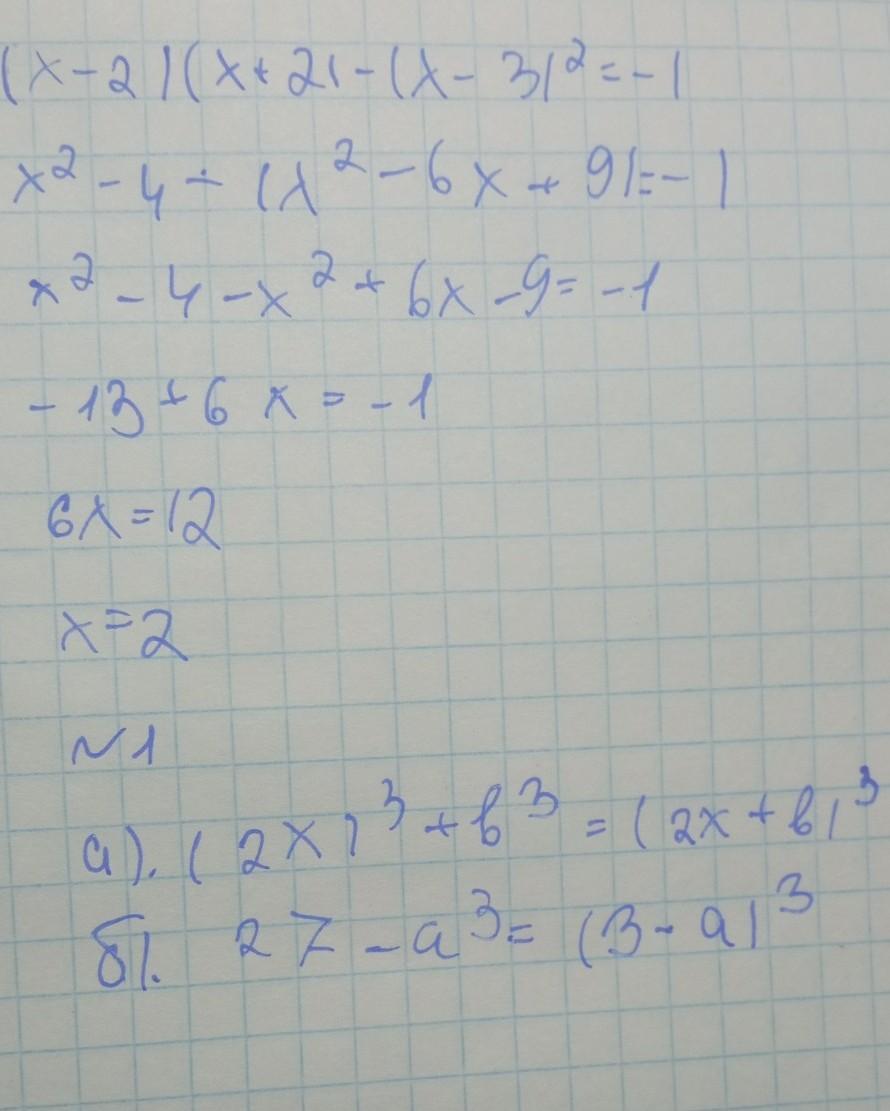 (x-2)(x+2)-(x-3)²=-1
x²-4-(x²-6x+9)=-1
x²-4-x²+6x-9=-1
-13+6x=-1
6x=12
x=2
№1
а). (2x)³+b³=(2x+b)³
б). 27-a³=(3-a)³